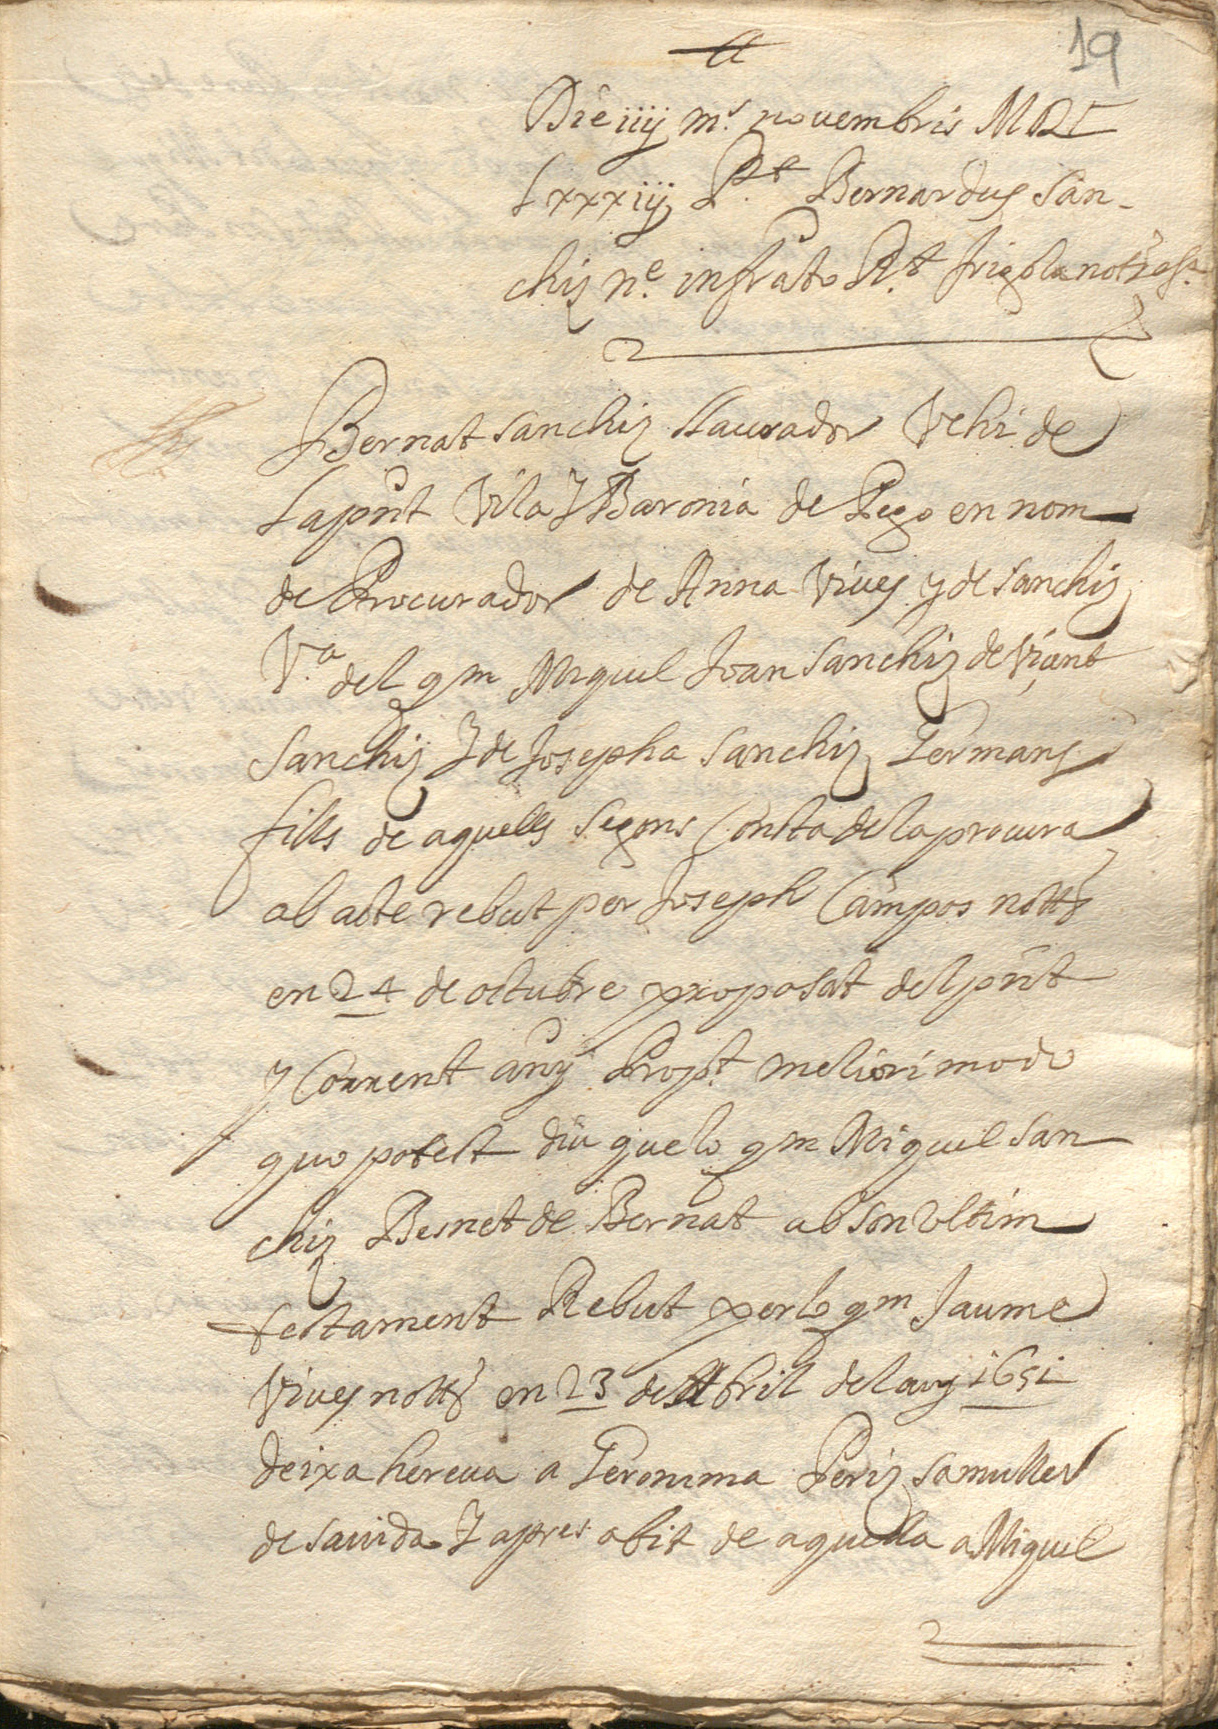 19
Die iiij m.s novembris MDC
Lxxxiij P.t Bernardus San-
chis n.e infrato R.t
Bernat Sanchiz llaurador Vehi de
la pñt Vila y Baronia de Pego en nom
de Procurador de Anna Vives y de Sanchiz
V.a del qm Miquel Joan Sanchiz de Viçent
Sanchiz y de Josepha Sanchiz Germans
fills de aquells segons Consta de la procura
ab acte rebut per Joseph Campos nottⁱ
en 24 de octubre proposat del pñt
y Corrent any Prop.t meliori modo
quo potest diu que lo qm Miquel San
chiz Besnet de Bernat ab son Ultim
testament Rebut per lo qm Jaume
Vives nottⁱ en 23 de Abril del any 1651
deixa hereua a Geronima Periz sa muller
de sa uida y apres obit de aquella a Miquel